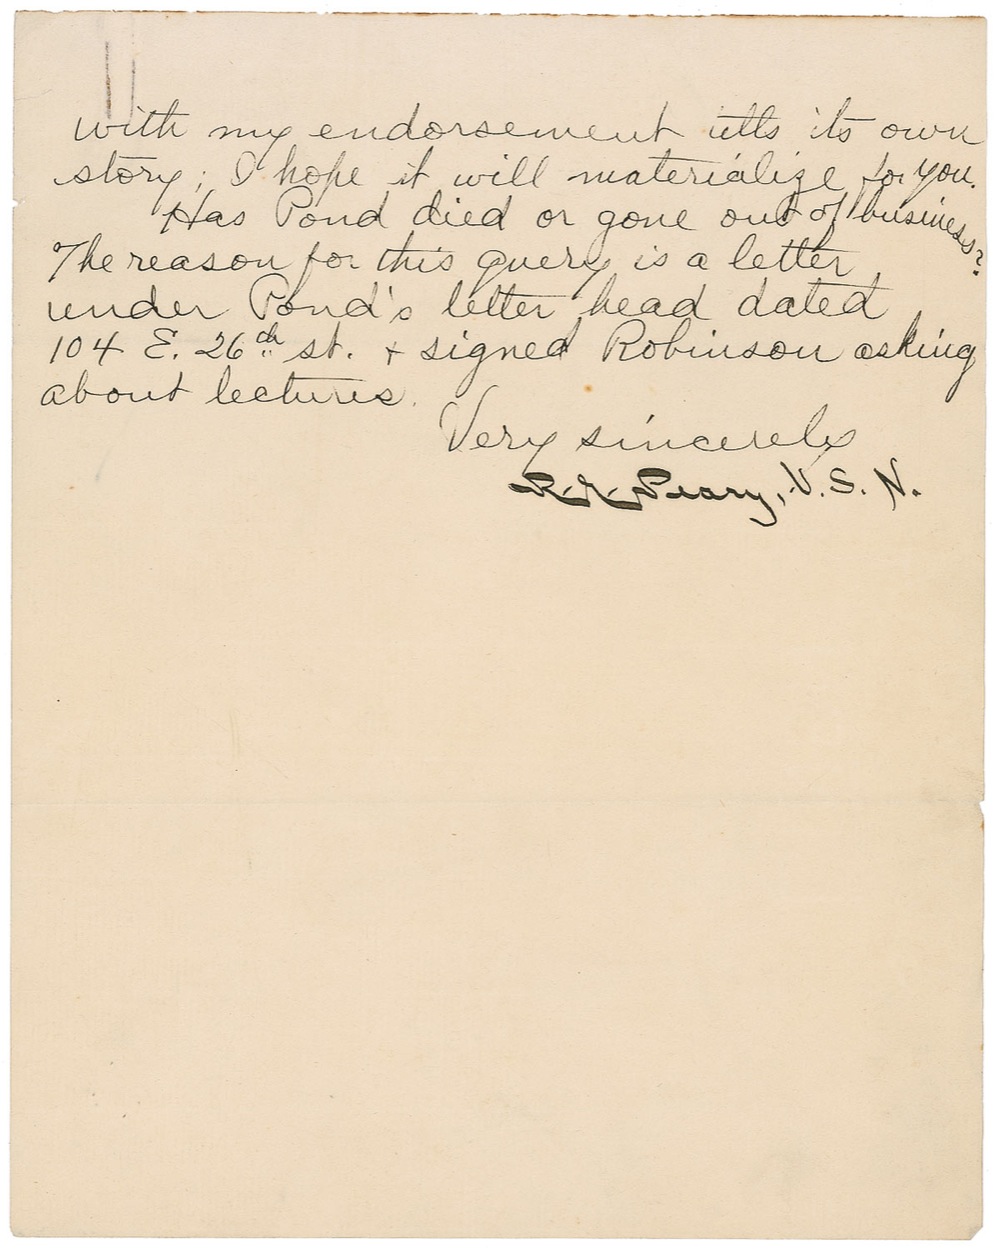 with my endorsement tells its own
story; I hope it will materialize for you.
Has Pond died or gone out of business?
The reason for this query is a letter
under Pond's letter head dated
104 E. 26th st. + signed Robinson asking
about lectures.
Very sincerely
R. E. Peary, U. S. N.